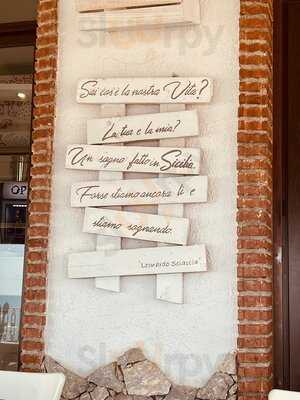 Sai cos'è la nostra Vita?
La tua e la mia?
Un sogno fatto in Sicilia.
Forse stiamo ancora lì e
stiamo sognando.
"Leonardo Sciascia"